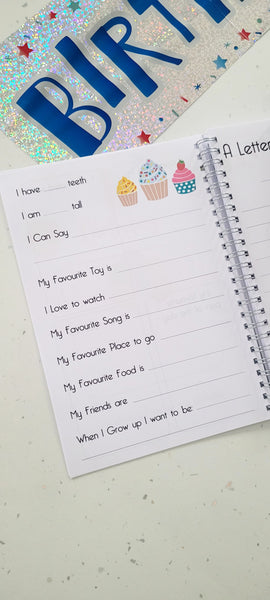 BIRTH
I have ______ teeth
I am ______ tall
I Can Say
My Favourite Toy is
I Love to watch
My Favourite Song is
My Favourite Place to go
My Favourite Food is
My Friends are
When I Grow up I want to be:
A Letter